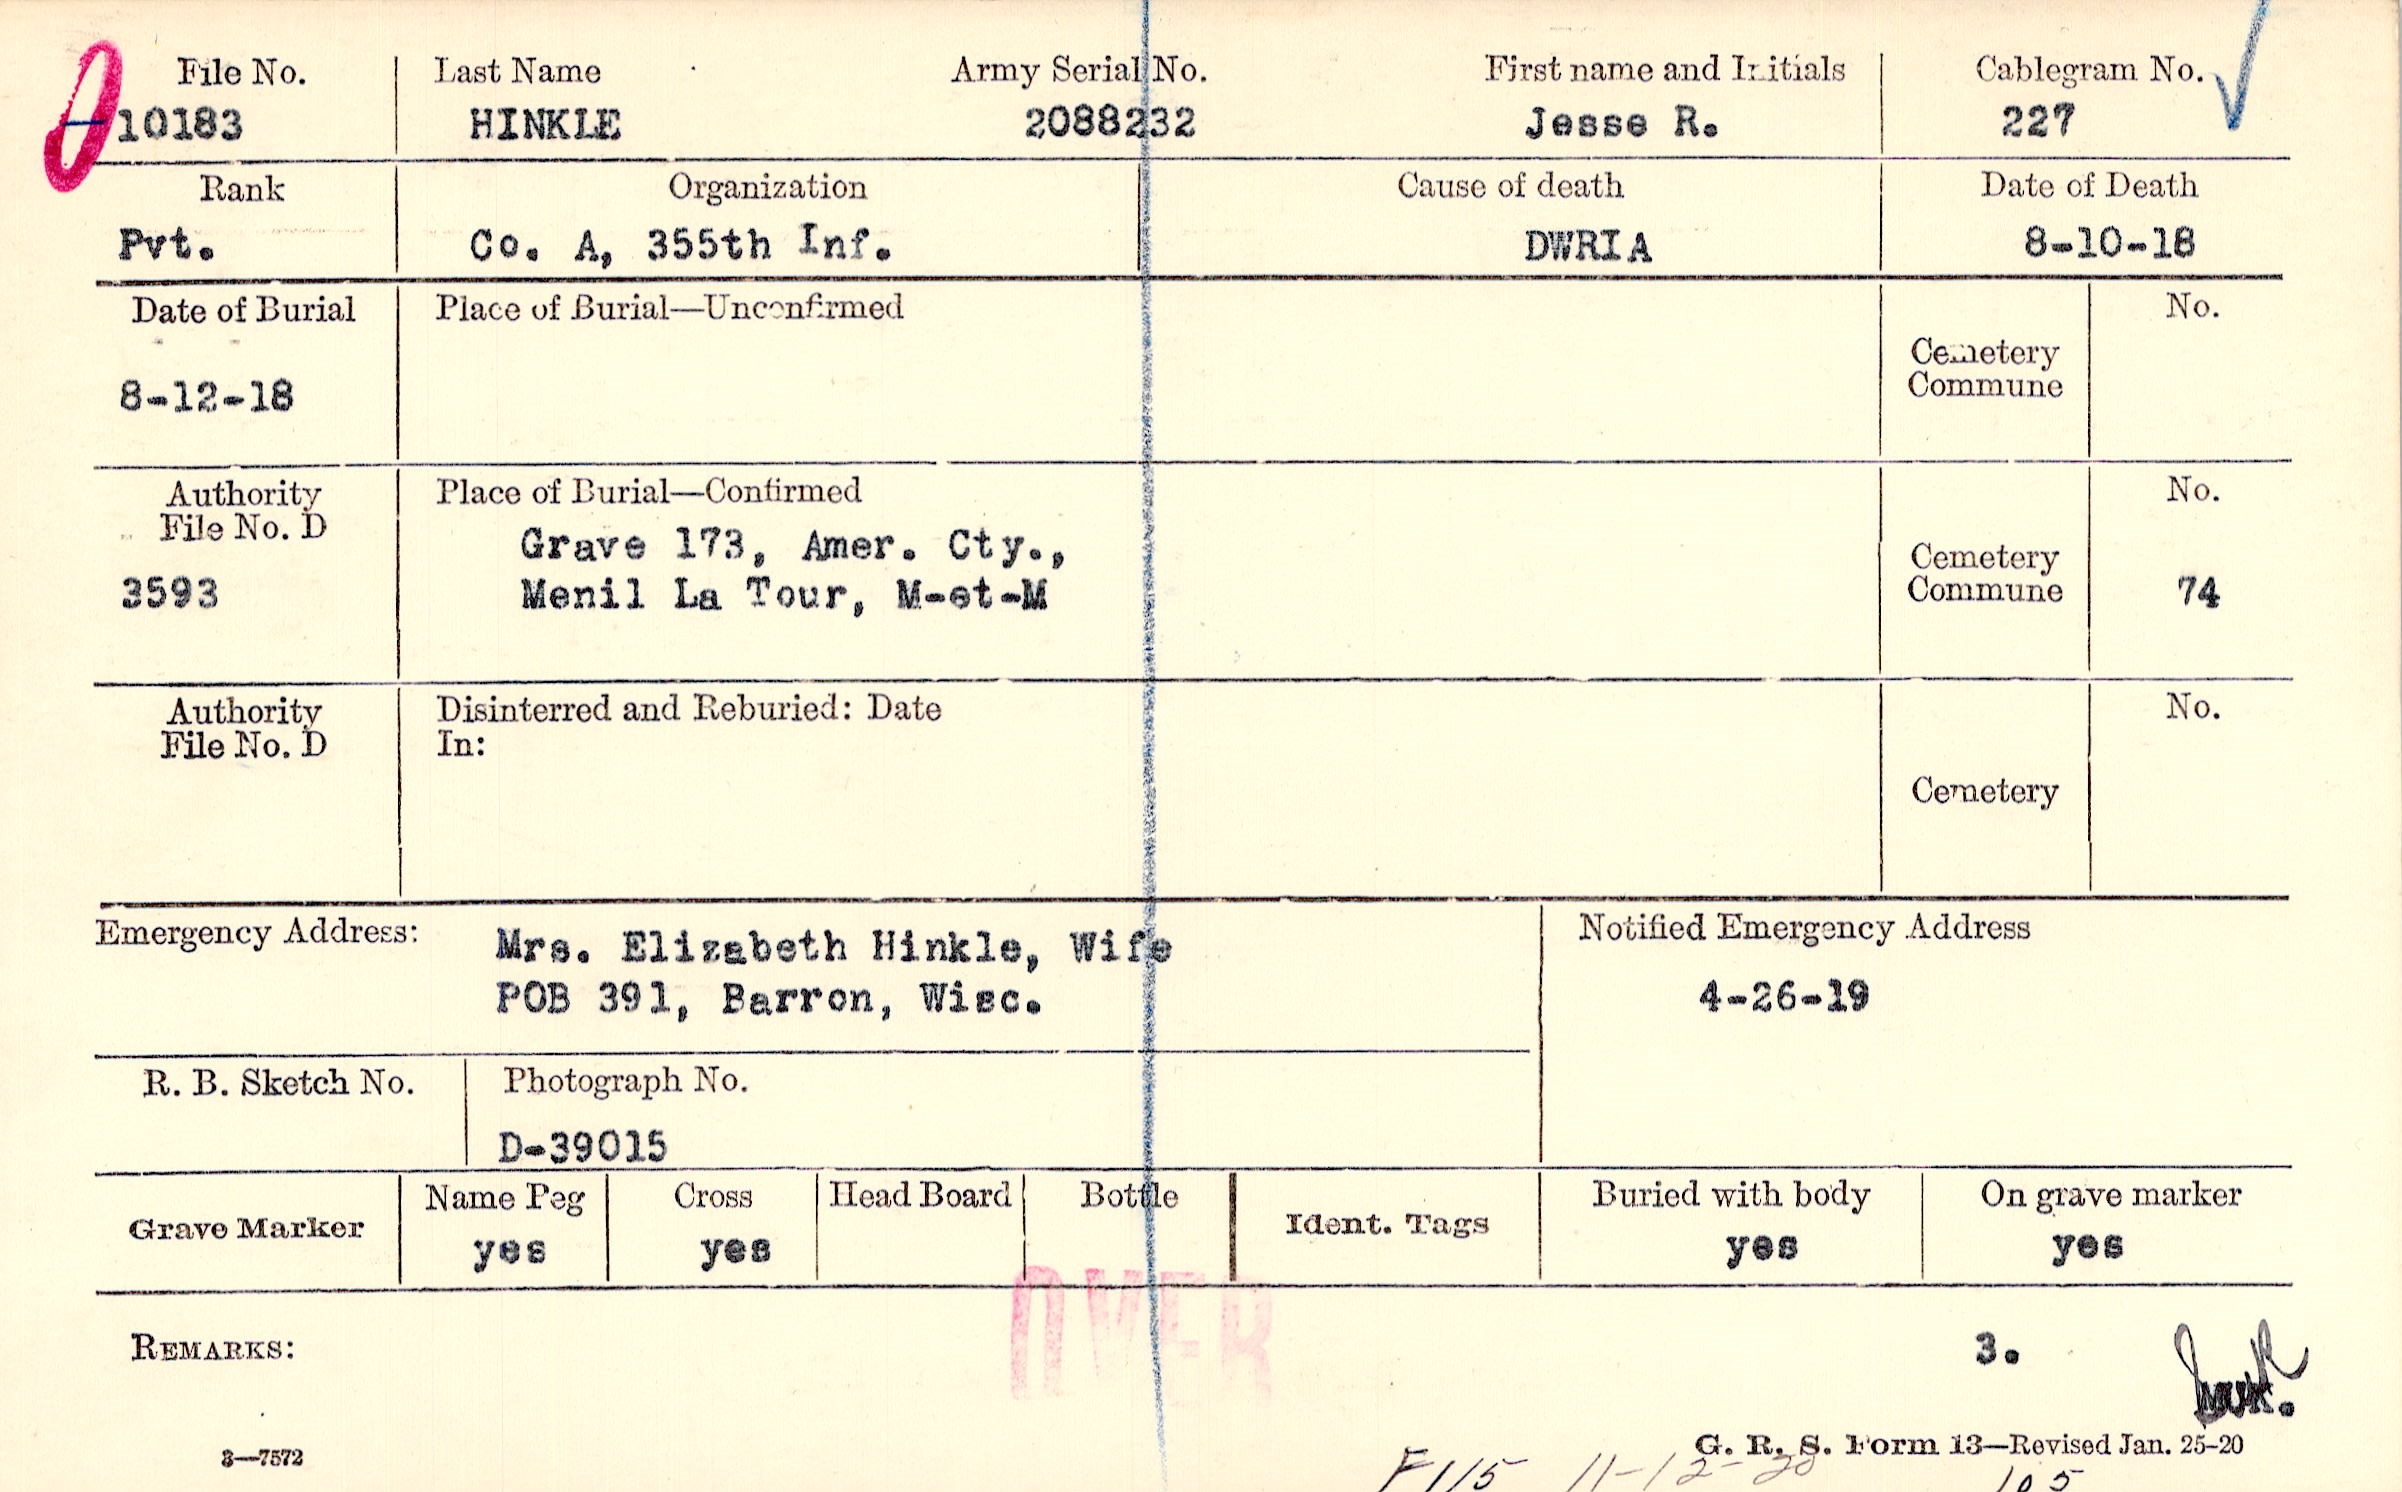 File No. Last Name Army Serial No. First name and Initials Cablegram No.
10183 HINKLE 2088232 Jesse R. 227
Rank Organization Cause of death Date of Death
Pvt. Co. A, 355th Inf. DWRIA 8-10-18
Date of Burial Place of Burial—Unconfirmed No.
8-12-18
Cemetery
Commune
Authority Place of Burial—Confirmed No.
File No. D
3593
Grave 173, Amer. Cty.,
Menil La Tour, M-et-M
Cemetery
Commune 74
Authority Disinterred and Reburied: Date No.
File No. D In:
Cemetery
Emergency Address: Mrs. Elizabeth Hinkle, Wife
POB 391, Barron, Wisc.
Notified Emergency Address
4-26-19
R. B. Sketch No. Photograph No.
D-39015
Grave Marker Name Peg Cross Head Board Bottle Ident. Tags Buried with body On grave marker
yes yes yes yes
OVER
REMARKS: 3.
3—7572 G. R. S. Form 13—Revised Jan. 25-20
F115 11-12-20 105